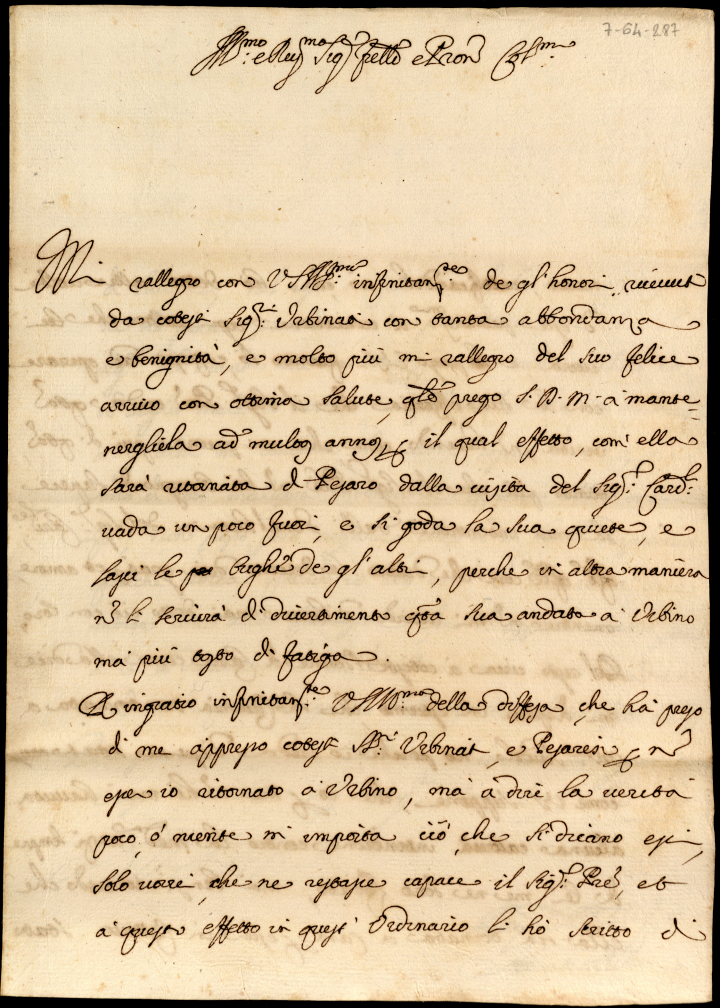 7-64-287
Ill.mo e Rev.mo Sig.r fratello e Pron Col.mo
Mi rallegro con VSIll.ma infinitam.te de gl'honori riceuuti
da cotesti Sig.ri Urbinati con tanta abbondanza
e benignità, e molto più mi rallegro del suo felice
arriuo con ottima salute, prego S. D. M. à mante=
nergliela ad multos annos, il qual effetto, com'ella
sarà ritornata di Pesaro dalla uisita del Sig.r Card.l
uada un poco fuori, e si goda la sua quiete, e
lasci le brighe de gl'altri, perche in altra maniera
nõ li seruirà di diuertimento q.ta sua andata à Urbino
mà più tosto di fatiga.
Ringratio infinitam.te VSIll.ma della difesa, che hà preso
di me appresso cotesti SS.ri Urbinati, e Pesaresi nõ
esser io ritornato à Urbino, mà à dire la uerità
poco, ò niente mi importa ciò, che si dicano essi,
solo uorrei, che ne restasse capace il Sig.r Pre, et
à questo effetto in quest'Ordinario li hò scritto di